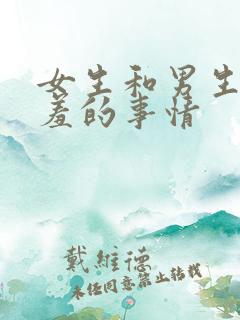 女生和男生
羞的事情
戴维德
未经同意禁止转载